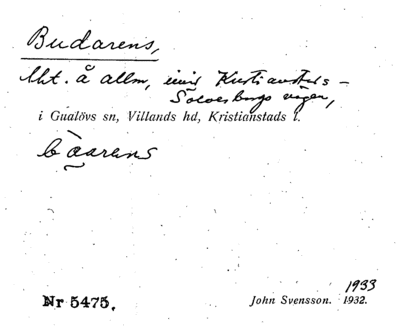 Budarens,
Mt. å allm, invid Kristianstads –
Sölvesborgs vägen,
i Gualövs sn, Villands hd, Kristianstads l.
1933
Nr 5475.
John Svensson. 1932.